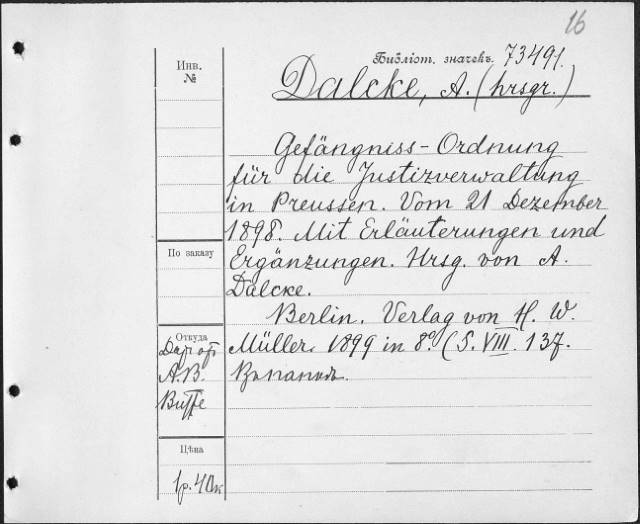 16
Библіот. значекъ. 73491.
Инв.
№
Dalcke, A. (hrsgr.)
Gefängniss-Ordnung
für die Justizverwaltung
in Preussen. Vom 21 Dezember
1898. Mit Erläuterungen und
По заказу
Ergänzungen. Hrsg. von A.
Dalcke.
Berlin. Verlag von H. W.
Откуда
Müller. 1899 in 8º. (S. VIII. 137.
Даръ отъ
А.В.
Витте
Цѣна
1р. 40к